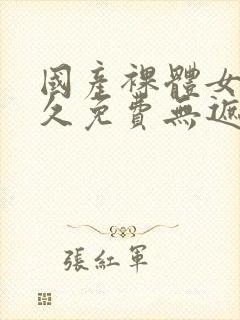 國產裸體女
久免費無遮
張紅軍